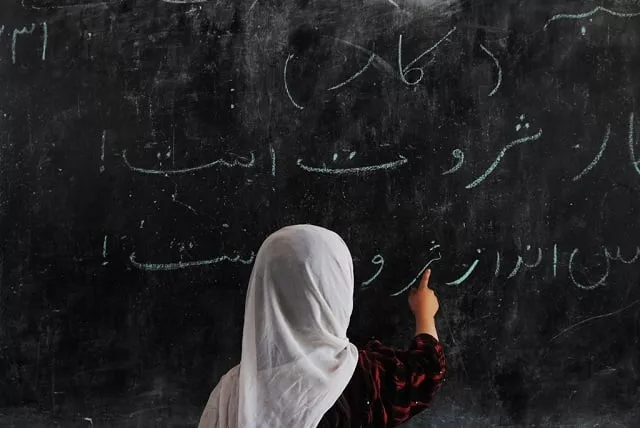 (کار)
کار ثروت است!
پس انداز ثروت است!